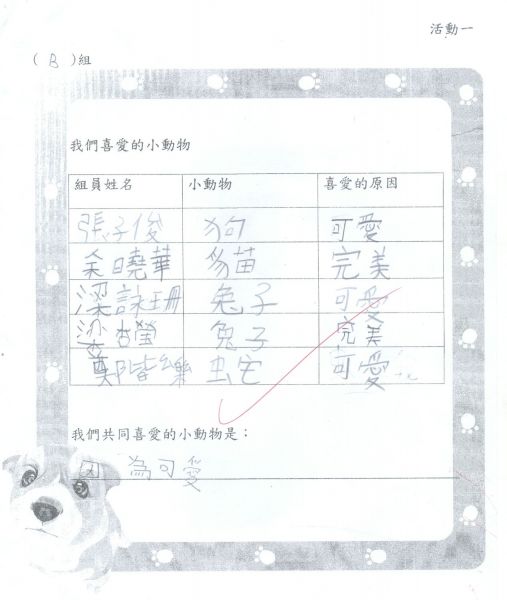 活動一
( B )組
我們喜愛的小動物
組員姓名 小動物 喜愛的原因
張子俊 狗 可愛
余曉華 貓 完美
梁詠珊 兔子 可愛
梁杏瑩 兔子 完美
鄭階樂 虫它 可愛
我們共同喜愛的小動物是：
因為可愛